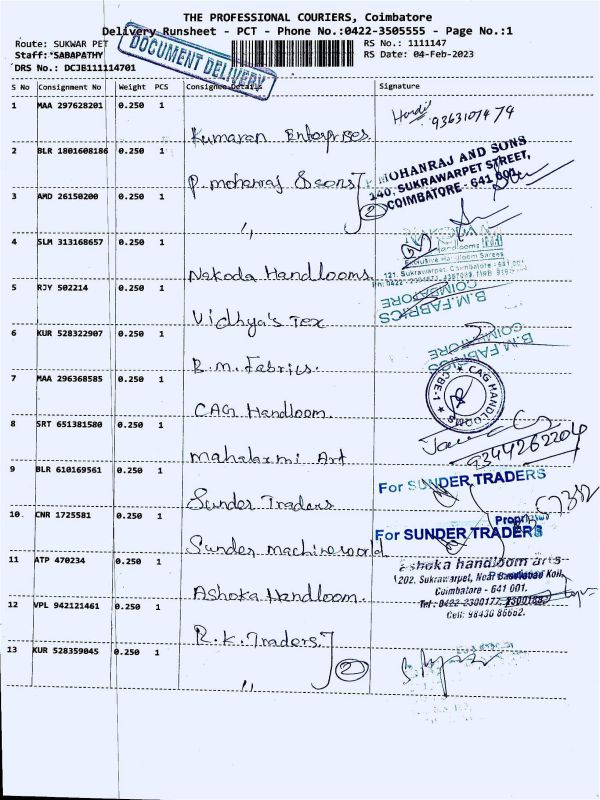 THE PROFESSIONAL COURIERS, Coimbatore
Delivery Runsheet - PCT - Phone No.:0422-3505555 - Page No.:1
Route: SUKWAR PET
RS No.: 1111147
Staff:*SABAPATHY
RS Date: 04-Feb-2023
DRS No.: DCJB111114701
DOCUMENT DELIVERY
S No Consignment No Weight PCS Consignee Details Signature
1 MAA 297628201 0.250 1
9363107479
Kumaran Enterprises
2 BLR 1801608186 0.250 1
P. mohanraj & sons
MOHANRAJ AND SONS
140, SUKRAWARPET STREET,
COIMBATORE - 641 001.
3 AMD 26150200 0.250 1
2
〃
4 SLM 313168657 0.250 1
Nakoda Handlooms
Exclusive Handloom Sarees
121, Sukrawarpet, Coimbatore - 641 001
5 RJY 502214 0.250 1
Vidhya's Tex
B.M.FABRICS
COIMBATORE
6 KUR 528322907 0.250 1
B.m. Fabrics.
B.M.FABRICS
COIMBATORE
7 MAA 296368585 0.250 1
CAG Handloom.
CAG HANDLOOMS
CBE-1
8 SRT 651381580 0.250 1
mahalaxmi Art
9344262204
9 BLR 610169561 0.250 1
Sunder Traders
For SUNDER TRADERS
10. CNR 1725581 0.250 1
Sunder machineworld
For SUNDER TRADERS
11 ATP 470234 0.250 1
Ashoka Handloom.
Ashoka handloom arts
202, Sukrawarpet, Near Koil,
Coimbatore - 641 001.
Tel : 0422-2300177,
Cell: 98430 86662.
12 VPL 942121461 0.250 1
R.K. Traders.
13 KUR 528359045 0.250 1
2
〃